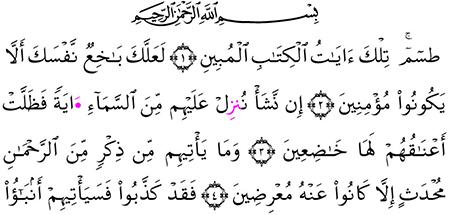 بِسْمِ اللَّهِ الرَّحْمَٰنِ الرَّحِيمِ
طسٓمٓ ۚ تِلْكَ ءَايَٰتُ الْكِتَٰبِ الْمُبِينِ ﴿١﴾ لَعَلَّكَ بَٰخِعٌ نَّفْسَكَ أَلَّا
يَكُونُوا۟ مُؤْمِنِينَ ﴿٢﴾ إِن نَّشَأْ نُنزِلْ عَلَيْهِم مِّنَ السَّمَآءِ ءَايَةً فَظَلَّتْ
أَعْنَٰقُهُمْ لَهَا خَٰضِعِينَ ﴿٣﴾ وَمَا يَأْتِيهِم مِّن ذِكْرٍ مِّنَ الرَّحْمَٰنِ
مُحْدَثٍ إِلَّا كَانُوا۟ عَنْهُ مُعْرِضِينَ ﴿٤﴾ فَقَدْ كَذَّبُوا۟ فَسَيَأْتِيهِمْ أَنۢبَٰٓؤُا۟